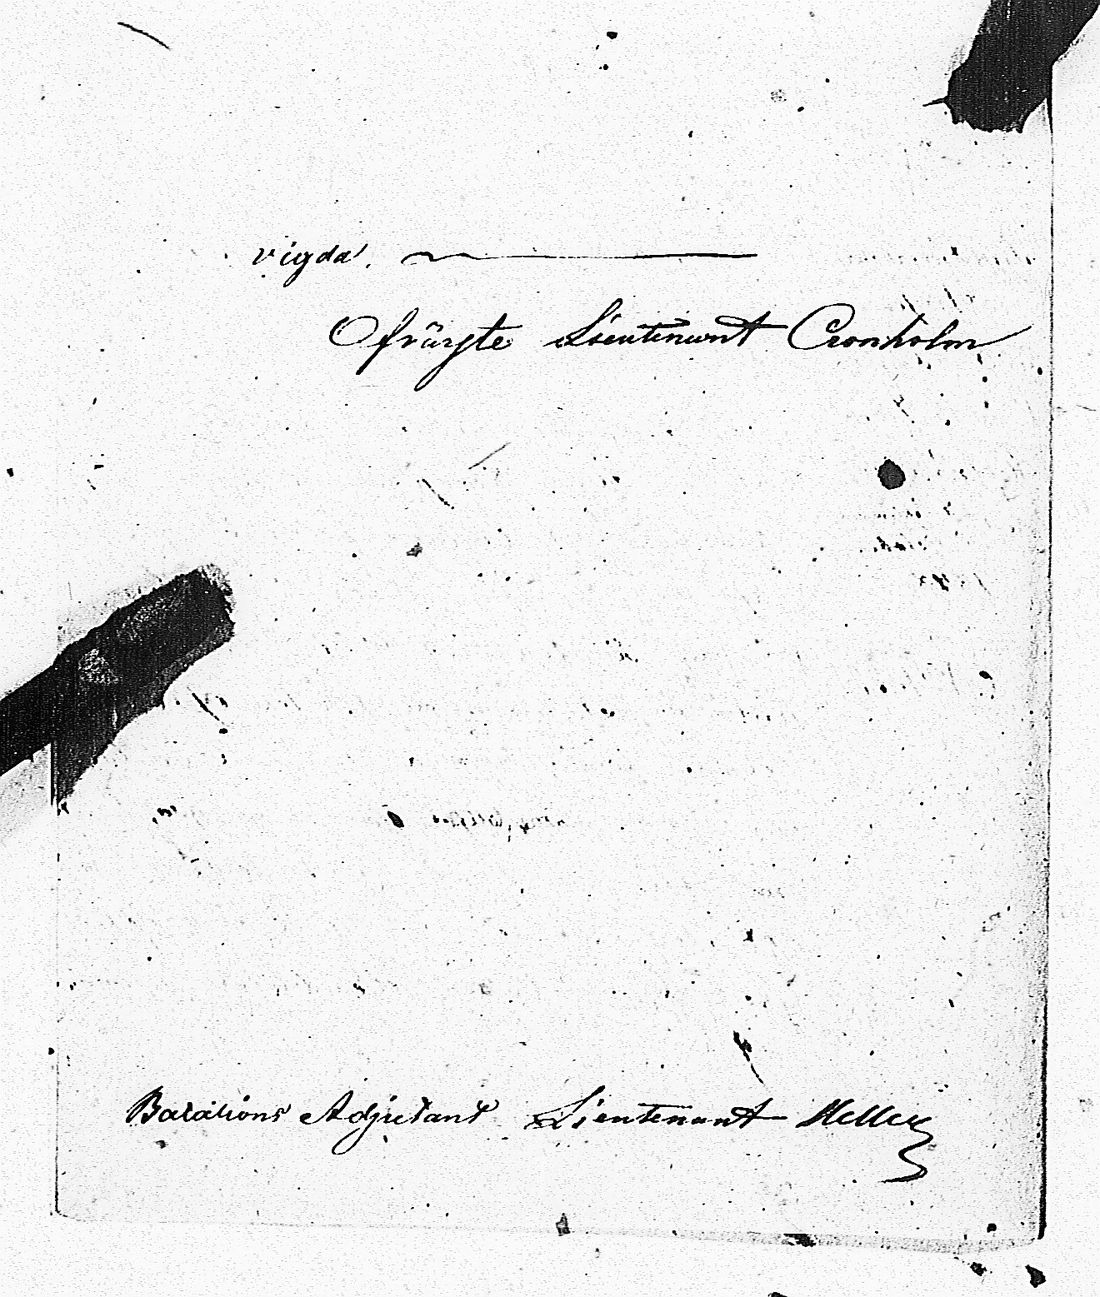 vigda.
Ofvärste Lieutenant Cronholm
Batalions Adjutant Lieutenant